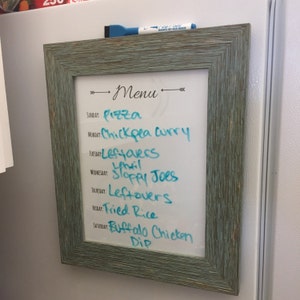 Menu
SUNDAY: Pizza
MONDAY: Chickpea Curry
TUESDAY: Leftovers
WEDNESDAY: Sloppy Joes
THURSDAY: Leftovers
FRIDAY: Fried Rice
SATURDAY: Buffalo Chicken
Dip